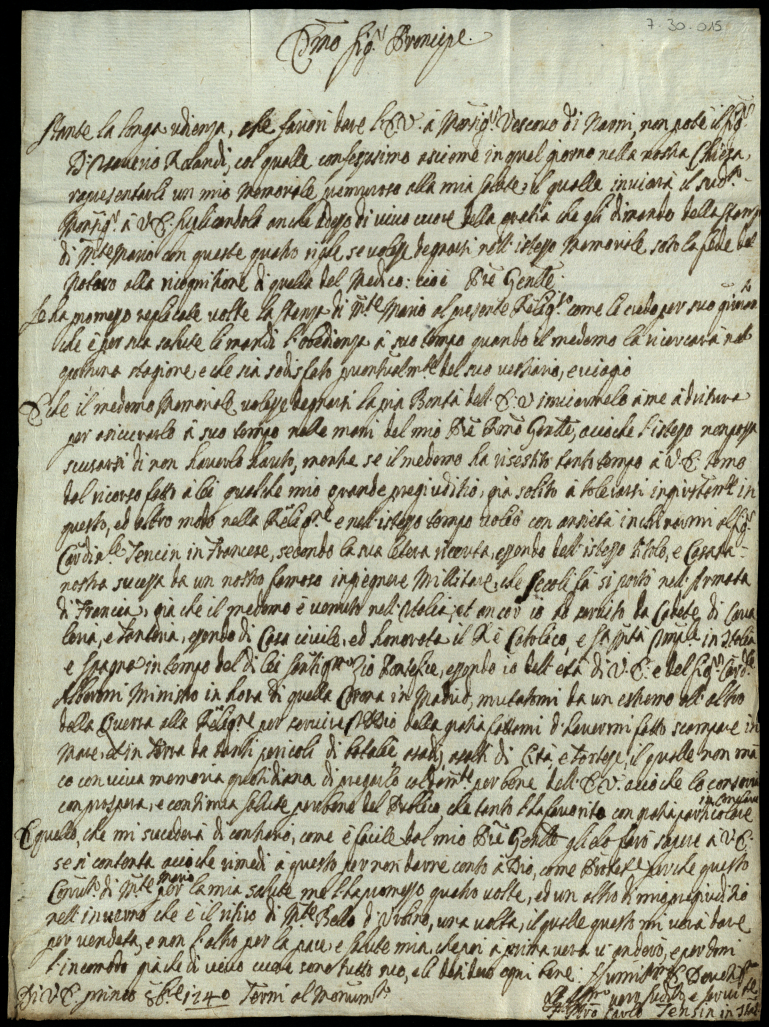 7-30-015
Emo Sigr Principe.
Stante la longa udienza, che favorì dare l'E.V. à Monsigr Vescovo di Narni, non potè il Sigr
D. Saverio Rolandi, col qualle confessimo assieme in quel giorno nella nostra Chiesa,
rapresentarle un mio Memoriale premuroso alla mia salute, il qualle inviarà il sudo
Monsigr à V.E. suplicandola anche adesso di vivo cuore della gratia che gli dimando della stanza
di Mte Mario con queste quatro righe, se volesse degnarsi nell'istesso Memoriale soto la fede del
Notaro alla ricognitione di quella del Medico: cioè Pre Gente
Le ha promesso replicate volte la stanza di Mte Mario al presente Religso come le credo per suo
che è per sua salute le mandi l'obedienza à suo tempo quando il medemo la ricercarà nel
stagione, e che sia sodisfato puontualmte del suo vestiario, e viagio
E che il medemo Memoriale volesse degnarsi la sua Bontà dell'E.V. inviarmelo à me à dritura
per assicurarlo à suo tempo nelle mani del mio Pre Gente, acciochè l'istesso non possa
scusarsi di non haverlo hauto, mentre se il medemo ha risestito tanto tempo à V.E. temo
del ricorso fatto à lei qualche mio grande pregiuditio, già solito à tolerarsi ingiustamte in
questo, ed altro modo nella Religne e nell'istesso tempo con ansietà inchinarmi al Sigr
Cardle Tencin in Francese, secondo la sua letera ricevuta, essendo dell'istesso titolo, e Casata
nostra sucessa da un nostro famoso ingegnere Millitare, che Secoli fà si portò nell'Armata
di Francia, già che il medemo è venuto nell'Italia; et ancor io hò servito da Cadete di Cava
leria, e Fanteria, essendo di Casa civile, ed honorata il Rè Catolico, e in Italia
e Spagna in tempo del di lei Zio Pontefice, essendo io dell'età di V.E. e del Sigr Cardle
Alberoni Ministro in hora di quella Corona in Madrid, mutatomi da un estremo all'altro
della Guerra alla Religne per servire Iddio della gratia fattami d'havermi fatto scampare in
Mare, et in Terra da tanti pericoli di batalie, assalti di Cità, e Fortezze, il qualle non man
co con viva memoria quotidiana di pregarlo caldamte per bene dell'E.V. acciochè lo conservi
con prospera, e continua salute per bene del Publico che tanto l'ha favorito con gratia particolare
in Conclave
E quello, che mi sucederà di contrario, come è facile dal mio Pre Gente glielo farò sapere à V.E.
se si contenta acciochè rimedi à questo per non darne conto à Dio, come Protetre perchè questo
Convto di Mte Mario per la mia salute me l'ha promesso quatro volte, ed un altro di mio pregiuditio
nell'inverno che è il ritiro di Mte Bello d'Urbino, una volta, il qualle questo mi vorà dare
per vendeta, e non l'altro per la pace, e salute mia, che poi à prima vera vi anderò, e perdoni
l'incomodo già che di vivo cuore sono tutto suo, e le desidero ogni bene: Humilmo e Devotmo
Di V.E. primo 8bre 1740 Terni al Monumto
vero suditto e servitre
F. Carlo Tensin